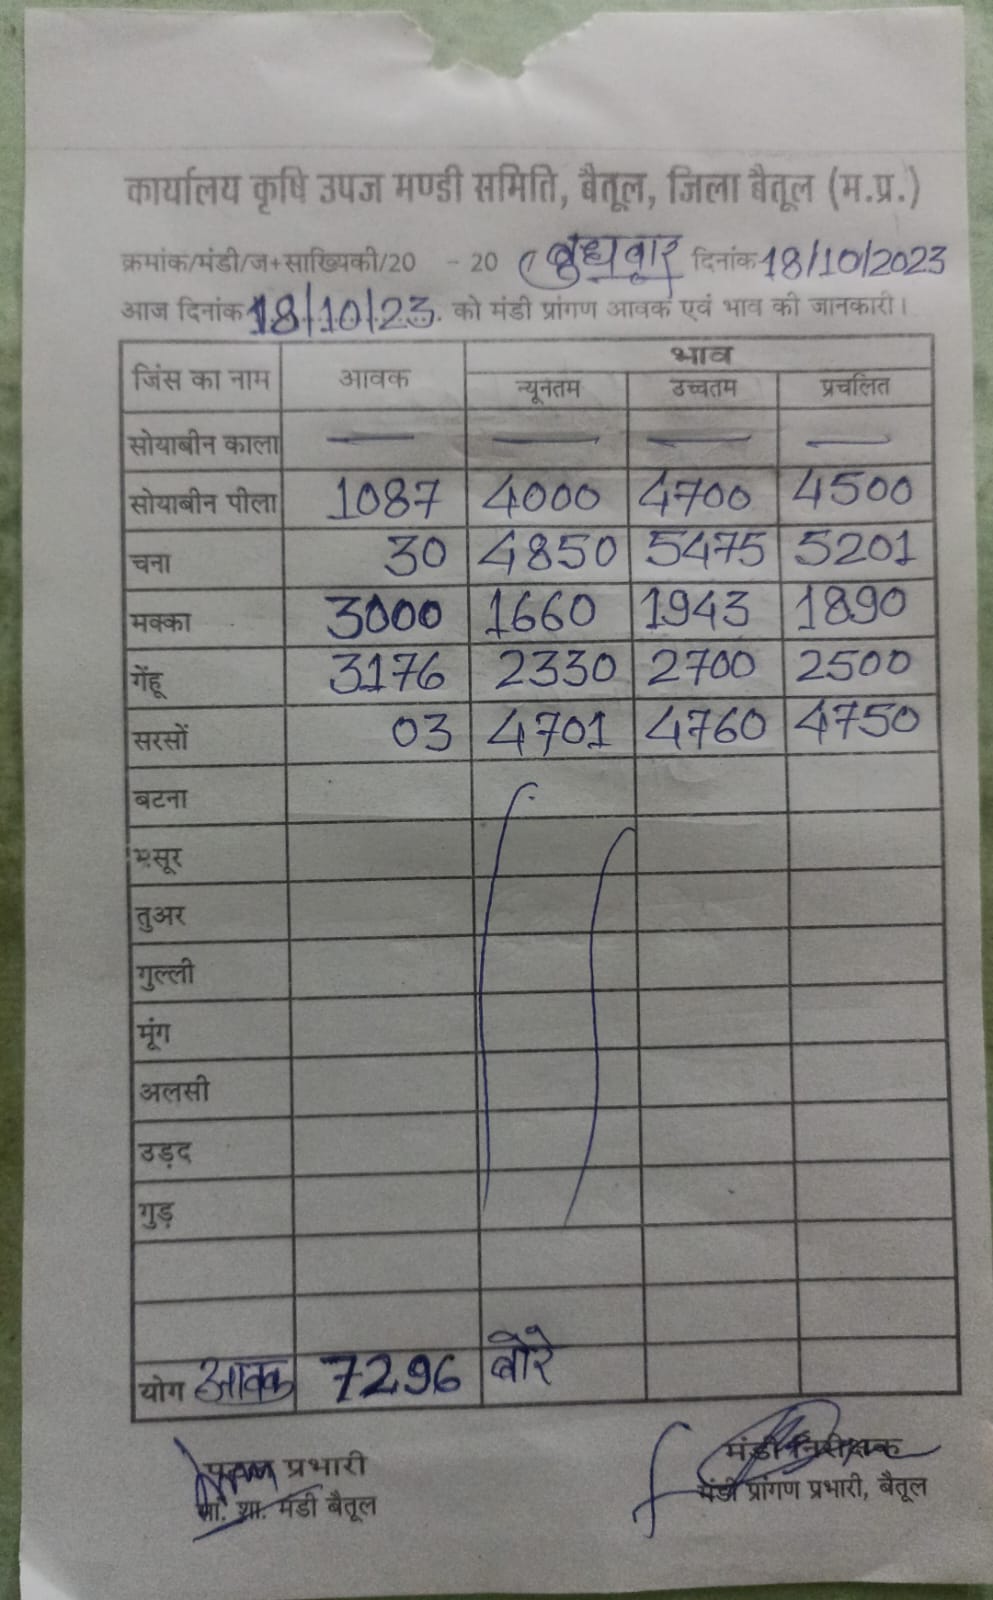 कार्यालय कृषि उपज मण्डी समिति, बैतूल, जिला बैतूल (म.प्र.)
क्रमांक/मंडी/ज+साख्यिकी/20 - 20 बुधवार दिनांक 18/10/2023
आज दिनांक 18/10/23. को मंडी प्रांगण आवक एवं भाव की जानकारी।
जिंस का नाम आवक भाव
न्यूनतम उच्चतम प्रचलित
सोयाबीन काला — — — —
सोयाबीन पीला 1087 4000 4700 4500
चना 30 4850 5475 5201
मक्का 3000 1660 1943 1890
गेंहू 3176 2330 2700 2500
सरसों 03 4701 4760 4750
बटना
मसूर
तुअर
गुल्ली
मूंग
अलसी
उड़द
गुड़
योग आवक 7296 बोरे
प्रभारी मंडी निरीक्षक
शा. मंडी बैतूल मंडी प्रांगण प्रभारी, बैतूल